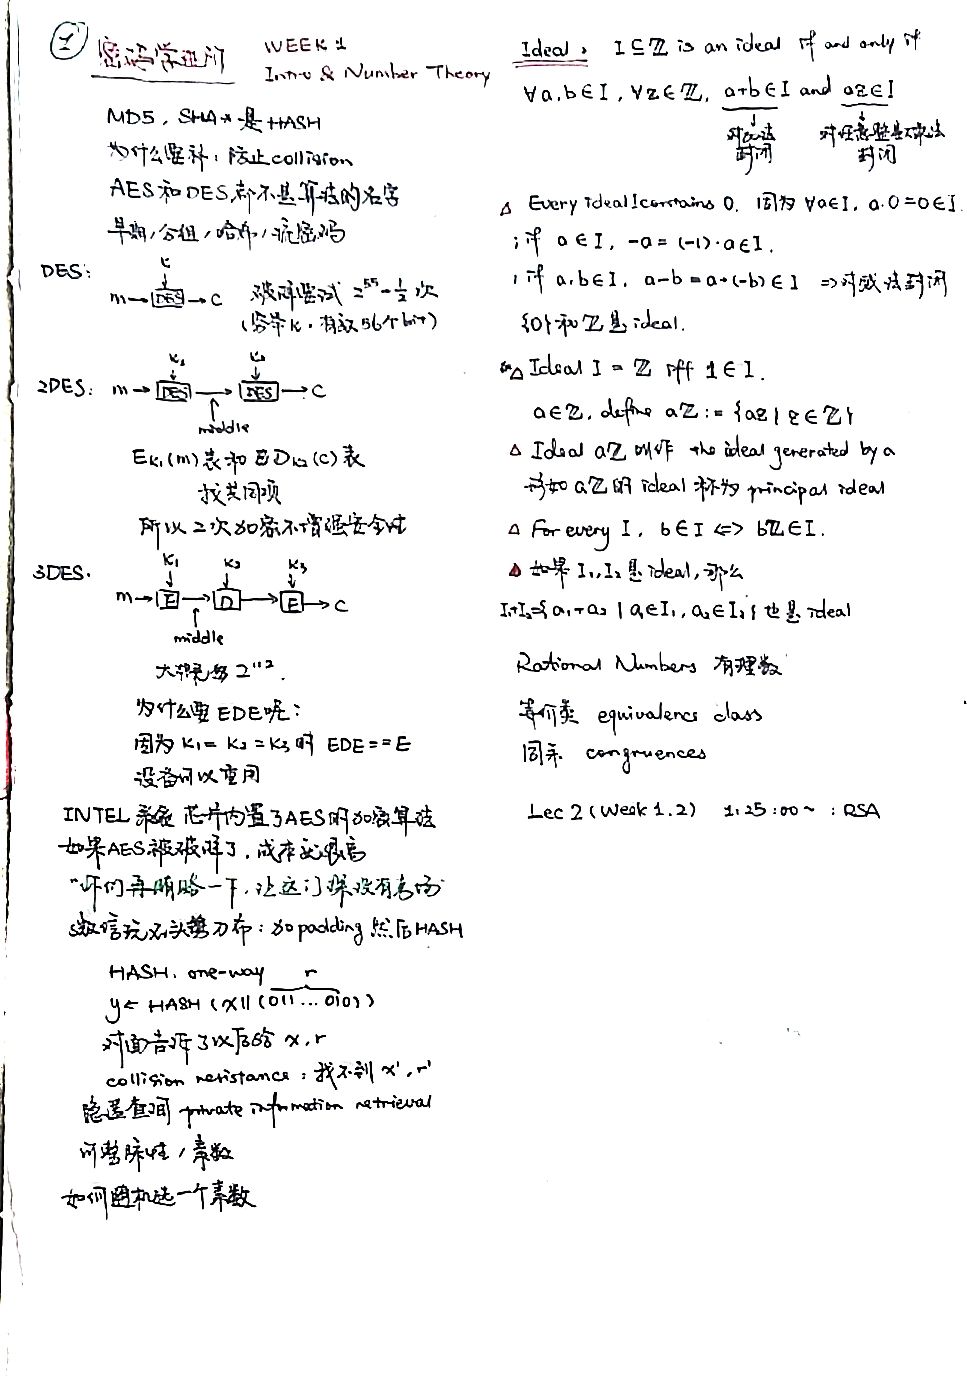 ① 密码学选门
WEEK 1
Intro & Number Theory
MD5, SHA* 是 HASH
为什么要补: 防止collision
AES和DES都不是算法的名字
早期/分组/哈希/流密码
DES:
k
m → DES → C
破解尝试 2^55 - 1/2 次
(穷举k, 有效56个bit)
2DES:
K₁ K₂
m → DES → DES → C
middle
Ek₁(m)表和 Dk₂(c)表
找共同项
所以2次加密不增强安全性
3DES.
K₁ K₂ K₃
m → E → D → E → C
middle
大概为 2¹¹².
为什么要EDE呢:
因为 K₁ = K₂ = K₃ 时 EDE == E
设备可以重用
INTEL 系 芯片内置了AES的加密算法
如果AES被破解了, 成本就很高
再 一下, 让这门课没有
玩石头剪刀布: 加padding 然后HASH
HASH, one-way r
y ← HASH (x || (011 ... 010))
对面告诉了以后给 x, r
collision resistance: 找不到 x', r'
隐匿查询 private information retrieval
可整除性 / 素数
如何随机选一个素数
Ideal: I ⊆ ℤ is an ideal if and only if
∀a,b∈I, ∀z∈ℤ, a+b∈I and az∈I
对加法 对任意整数乘法
封闭 封闭
△ Every ideal I contains 0. 因为 ∀a∈I, a·0=0∈I
; if a∈I, -a = (-1)·a∈I.
; if a,b∈I, a-b = a+(-b)∈I ⇒对减法封闭
{0}和ℤ是ideal.
△ Ideal I = ℤ iff 1∈I.
a∈ℤ, define aℤ := {az | z∈ℤ}
△ Ideal aℤ 叫作 the ideal generated by a
形如 aℤ 的 ideal 称为 principal ideal
△ For every I, b∈I ⇔ bℤ∈I.
△ 如果 I₁, I₂ 是ideal, 那么
I₁+I₂={a₁+a₂ | a₁∈I₁, a₂∈I₂} 也是 ideal
Rational Numbers 有理数
等价类 equivalence class
同余 congruences
Lec 2 (Week 1.2) 1:25:00~ : RSA